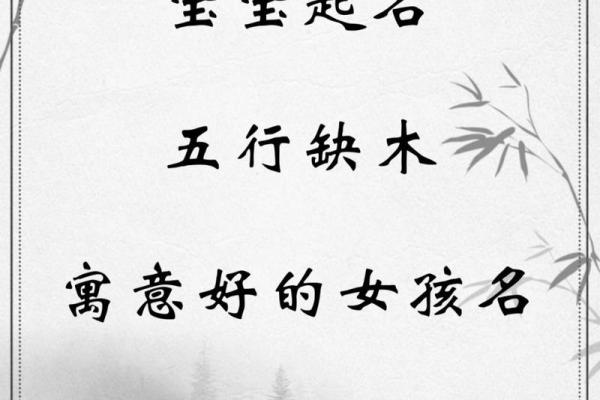 宝宝起名
五行缺木
寓意好的女孩名